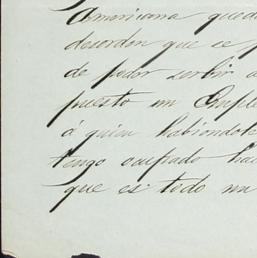 Americana queda
desorden que se p
de poder servir a
puesto un Emple
á quien habiéndole
tengo ocupado hac
que es todo un